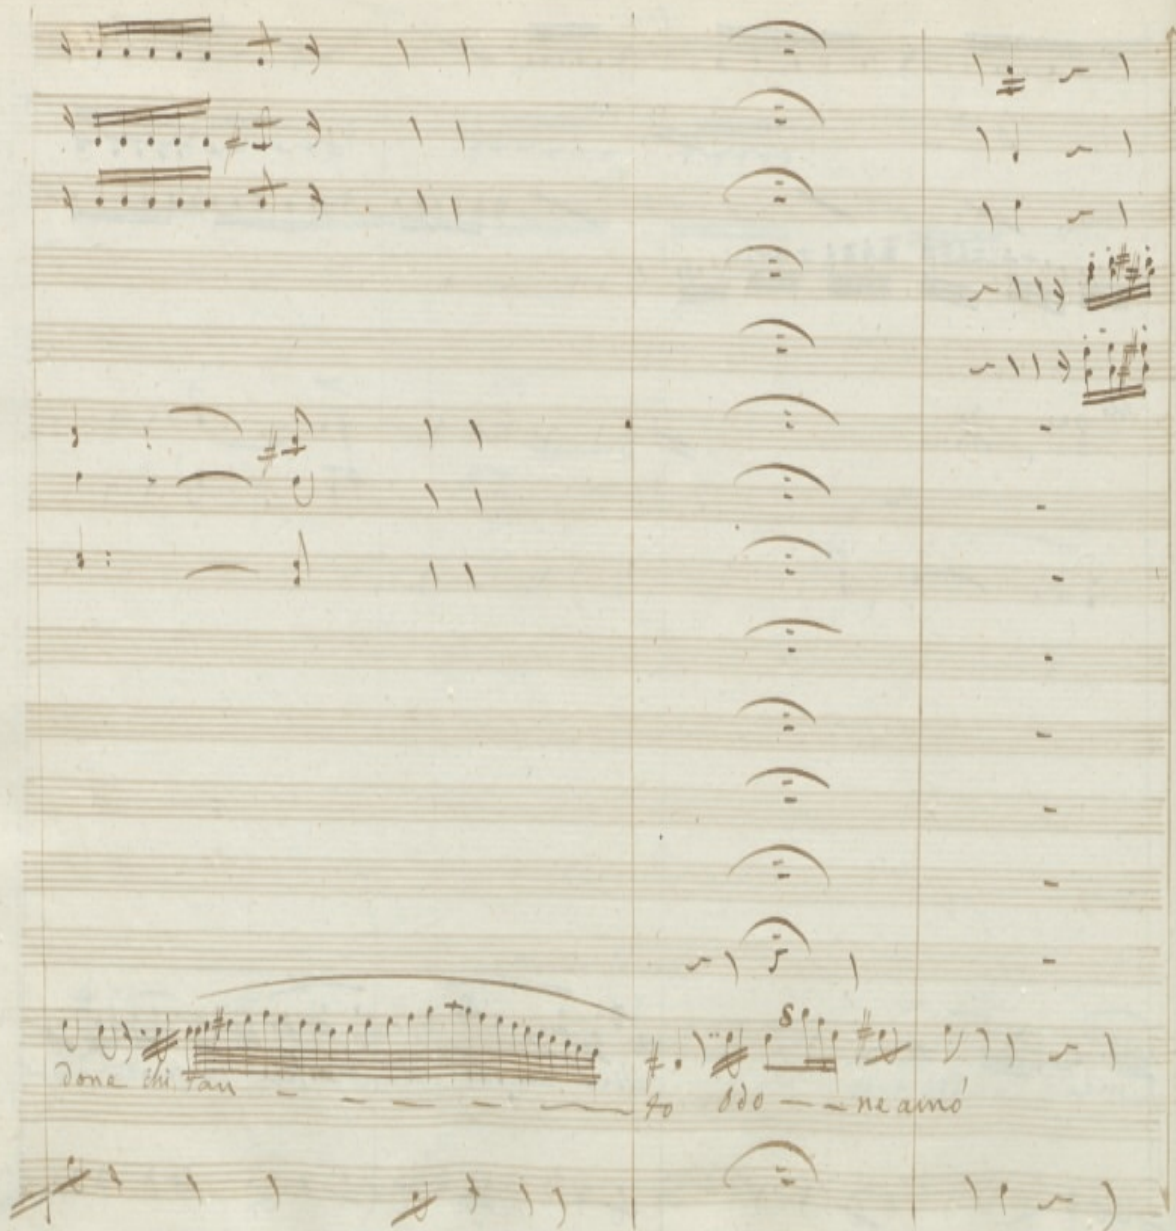 done chi tan - - - - - to odo - - ne amó